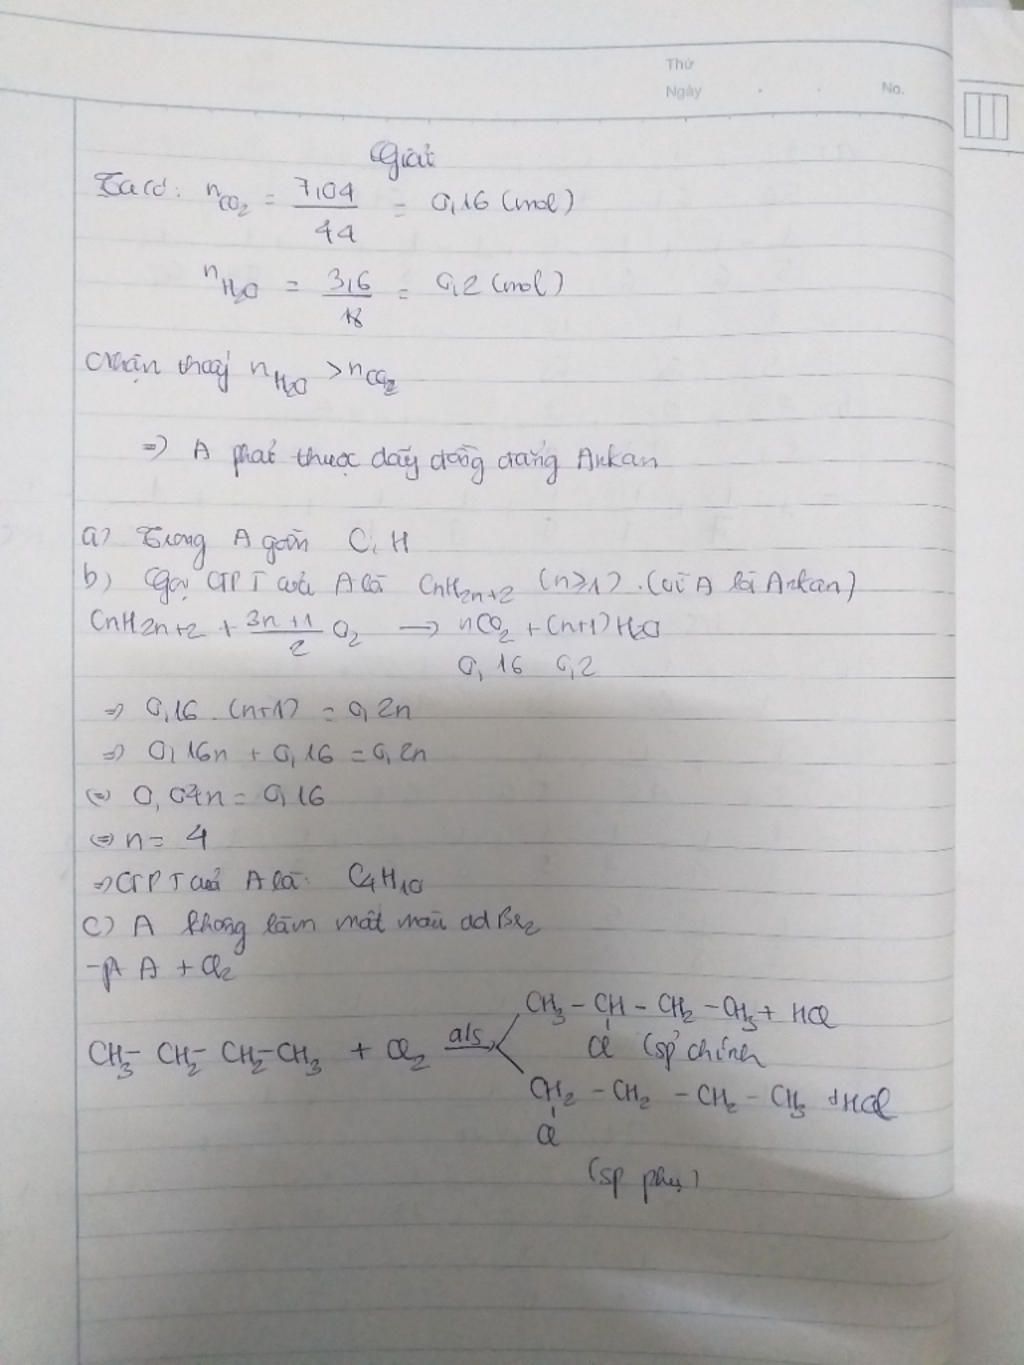 Thứ
Ngày No.
Giải
Ta có: nCO2 = 7,04/44 = 0,16 (mol)
nH2O = 3,6/18 = 0,2 (mol)
Nhận thấy nH2O > nCO2
=> A phải thuộc dãy đồng đẳng Ankan
a) Trong A gồm C, H
b) Gọi CTPT của A là CnH2n+2 (n≥1). (vì A là Ankan)
CnH2n+2 + 3n+1/2 O2 → nCO2 + (n+1)H2O
0,16 0,2
=> 0,16.(n+1) = 0,2n
=> 0,16n + 0,16 = 0,2n
<=> 0,04n = 0,16
<=> n = 4
=> CTPT của A là: C4H10
c) A không làm mất màu dd Br2
-p/ A + Cl2
CH3 - CH - CH2 - CH3 + HCl
Cl (sp chính
CH3 - CH2 - CH2 - CH3 + Cl2 a/s
CH2 - CH2 - CH2 - CH3 + HCl
Cl
(sp phụ)